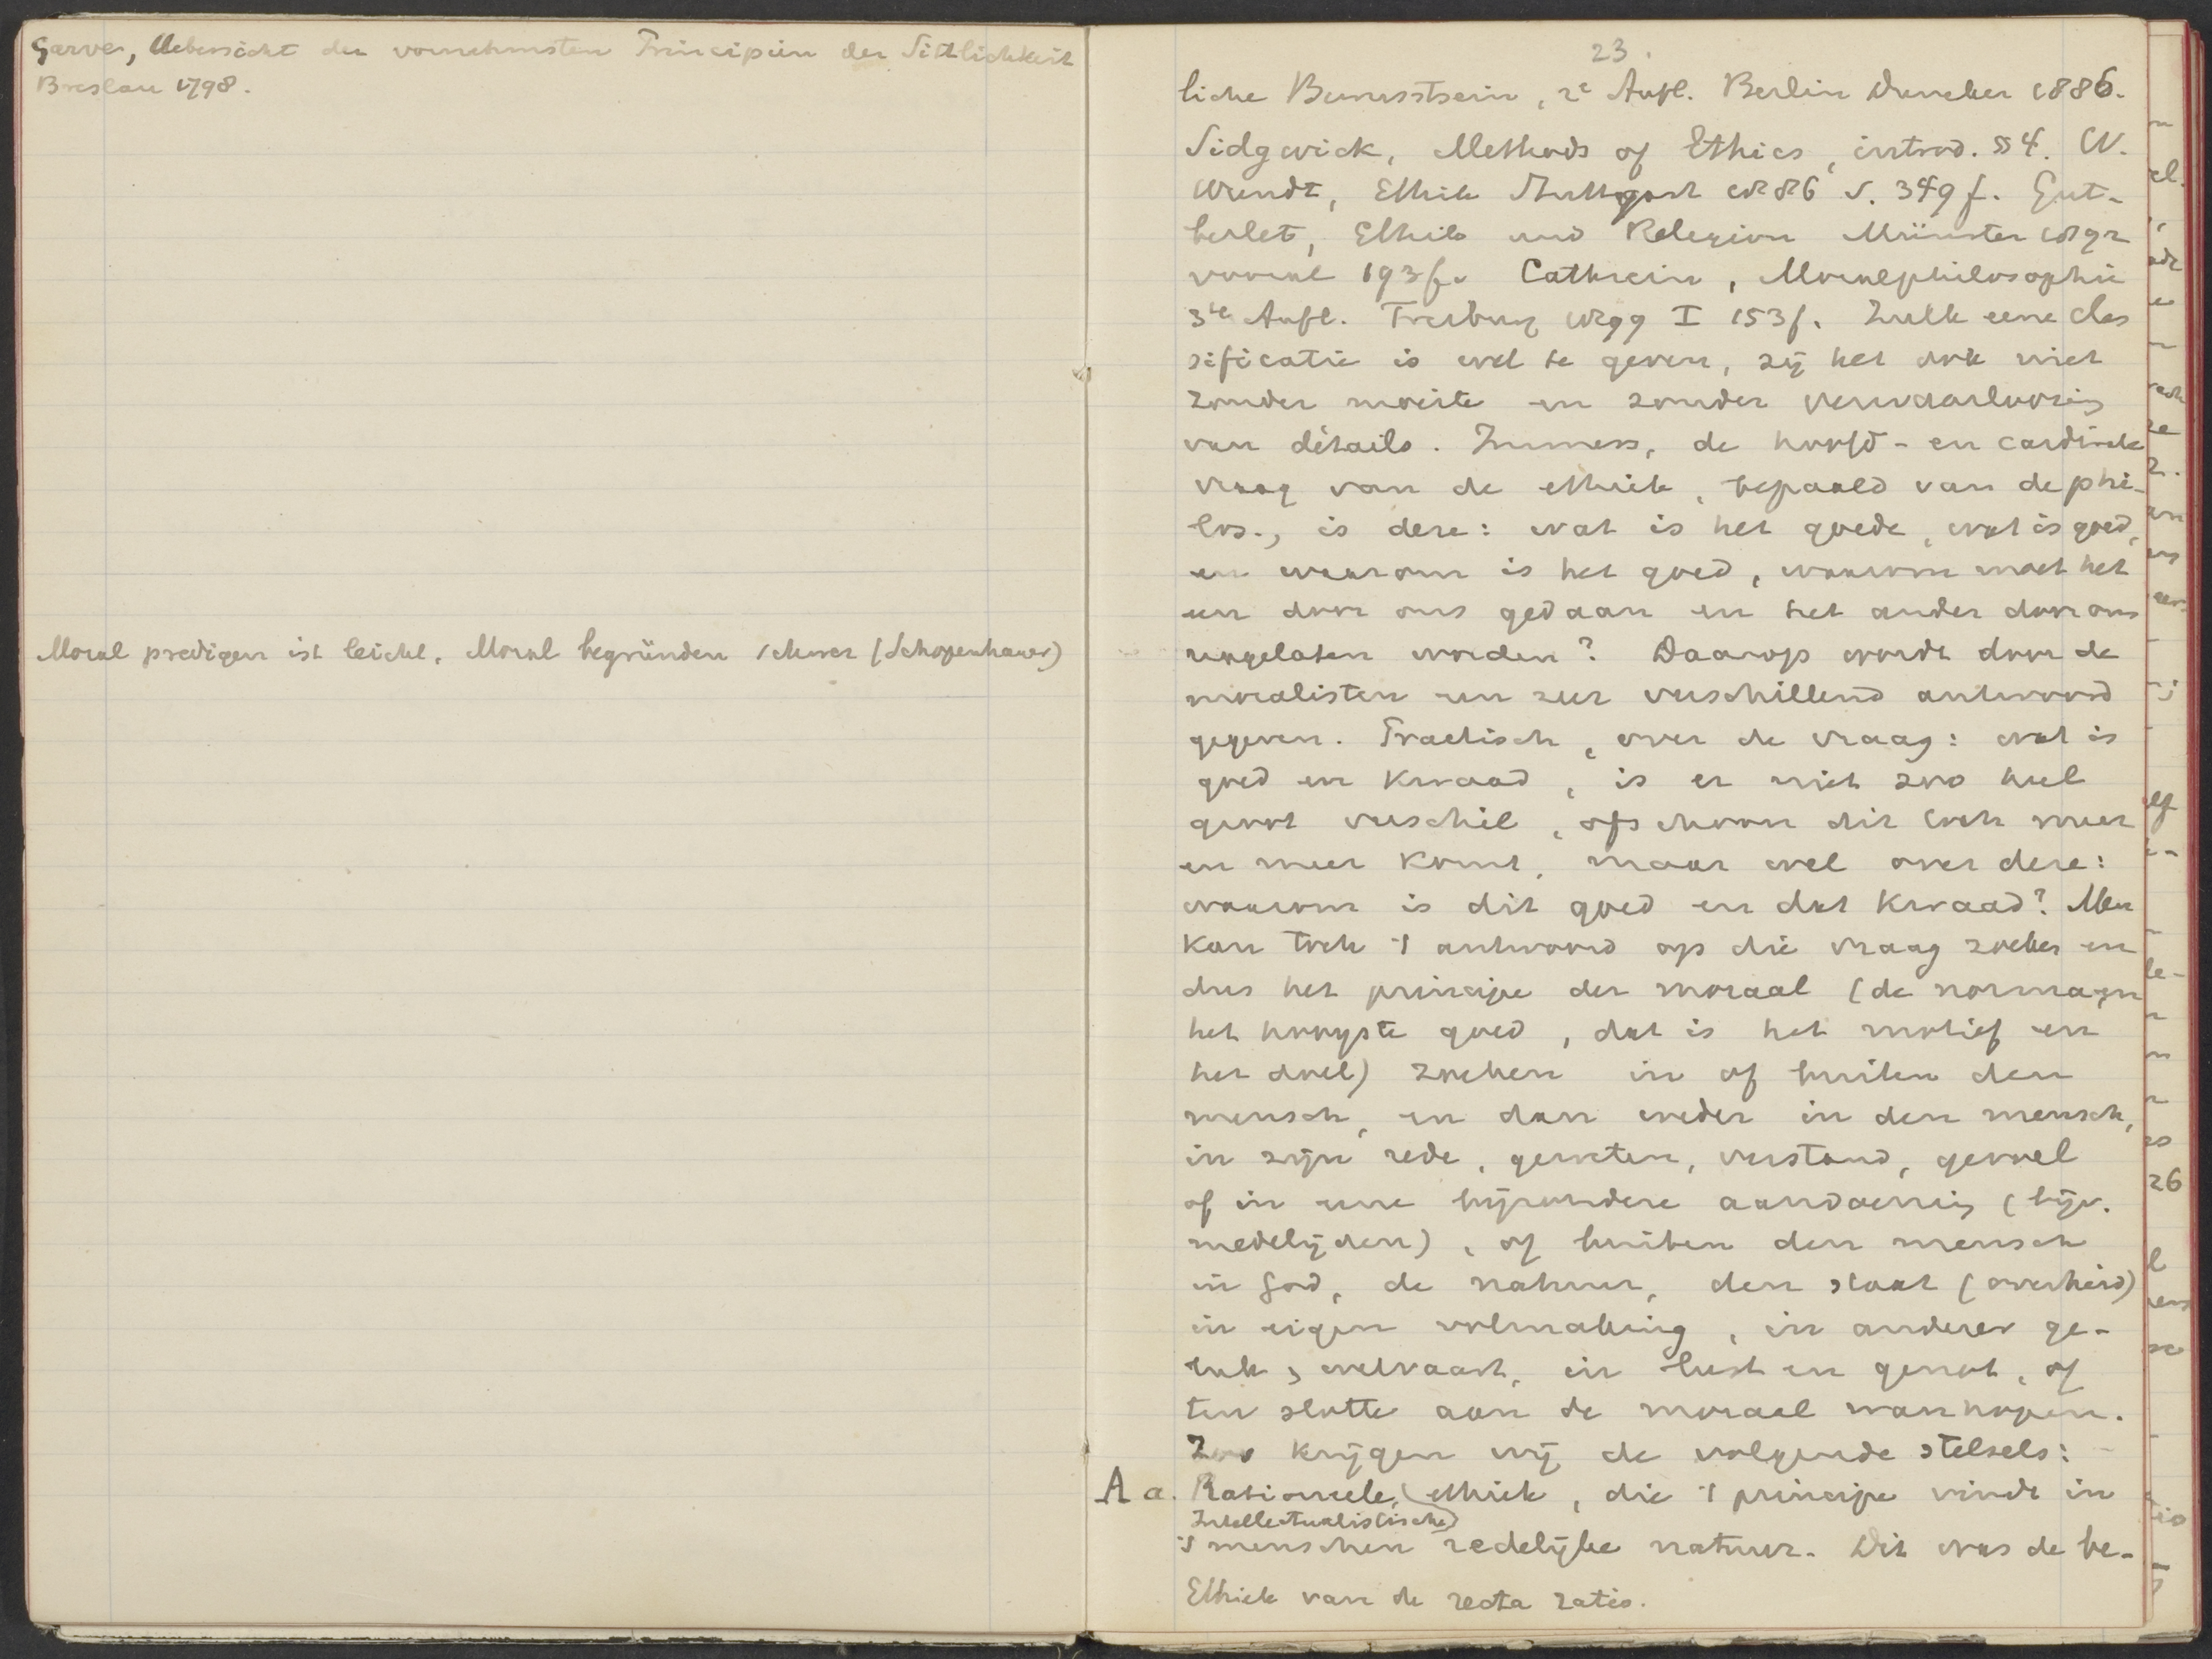 Garve, Uebersicht der vornehmsten Principien der Sittlichkeit
Breslau 1798.
Moral predigen ist leicht, Moral begründen schwer (Schopenhauer)
23.
liche Bewusstsein, 2e Aufl. Berlin Duncker 1886.
Sidgwick, Methods of Ethics, introd. § 4. W.
Wundt, Ethik Stuttgart 1886 S. 349 f. Gut-
berlet, Ethik und Religion Münster 1892
vooral 193 f. Cathrein, Moralphilosophie
3te Aufl. Freiburg 1899 I 153 f. Zulk eene clas
sificatie is wel te geven, zij het ook niet
zonder moeite en zonder verwaarloozing
van détails. Immers, de hoofd- en cardinale
vraag van de ethiek, bepaald van de phi-
los., is deze: wat is het goede, wat is goed,
en waarom is het goed, waarom moet het
een door ons gedaan en het ander door ons
nagelaten worden? Daarop wordt door de
moralisten een zeer verschillend antwoord
gegeven. Practisch, over de vraag: wat is
goed en kwaad, is er niet zoo heel
groot verschil, ofschoon dit ook meer
en meer komt, maar wel over deze:
waarom is dit goed en dat kwaad? Men
kan toch 't antwoord op die vraag zoeken en
dus het principe der moraal (de norma, en
het hoogste goed, dat is het motief en
het doel) zoeken in of buiten den
mensch, en dan weder in den mensch,
in zijn rede, geweten, verstand, gevoel
of in eene bijzondere aandoening (bijv.
medelijden), of buiten den mensch
in God, de natuur, den staat (overheid)
in eigen volmaking, in anderer ge-
luk, welvaart, in lust en genot, of
ten slotte aan de moraal wanhopen.
Zoo krijgen wij de volgende stelsels:
A a. Rationeele, ethiek, die 't principe vindt in
Intellectualistische
's menschen redelijke natuur. Dit was de be-
Ethiek van de recta ratio.